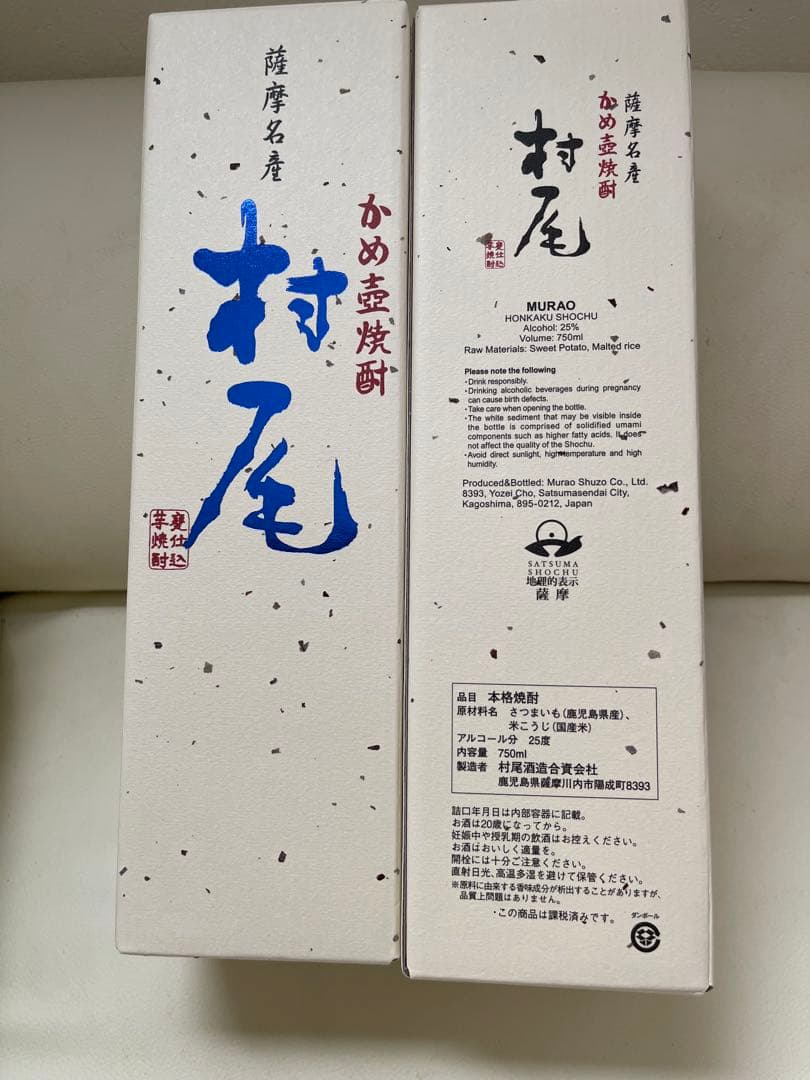 薩摩名産
かめ壺焼酎
村尾
甕仕込
芋焼酎
薩摩名産
かめ壺焼酎
村尾
甕仕込
芋焼酎
MURAO
HONKAKU SHOCHU
Alcohol: 25%
Volume: 750ml
Raw Materials: Sweet Potato, Malted rice
Please note the following
・Drink responsibly.
・Drinking alcoholic beverages during pregnancy
can cause birth defects.
・Take care when opening the bottle.
・The white sediment that may be visible inside
the bottle is comprised of solidified umami
components such as higher fatty acids. It does
not affect the quality of the Shochu.
・Avoid direct sunlight, high temperature and high
humidity.
Produced&Bottled: Murao Shuzo Co., Ltd.
8393, Yozei Cho, Satsumasendai City,
Kagoshima, 895-0212, Japan
SATSUMA
SHOCHU
地理的表示
薩摩
品目 本格焼酎
原材料名 さつまいも(鹿児島県産)、
米こうじ(国産米)
アルコール分 25度
内容量 750ml
製造者 村尾酒造合資会社
鹿児島県薩摩川内市陽成町8393
詰口年月日は内部容器に記載。
お酒は20歳になってから。
妊娠中や授乳期の飲酒はお控えください。
お酒はおいしく適量を。
開栓には十分ご注意ください。
直射日光、高温多湿を避けて保管ください。
※原料に由来する香味成分が析出することがありますが、
品質上問題はありません。
・この商品は課税済みです。
ダンボール